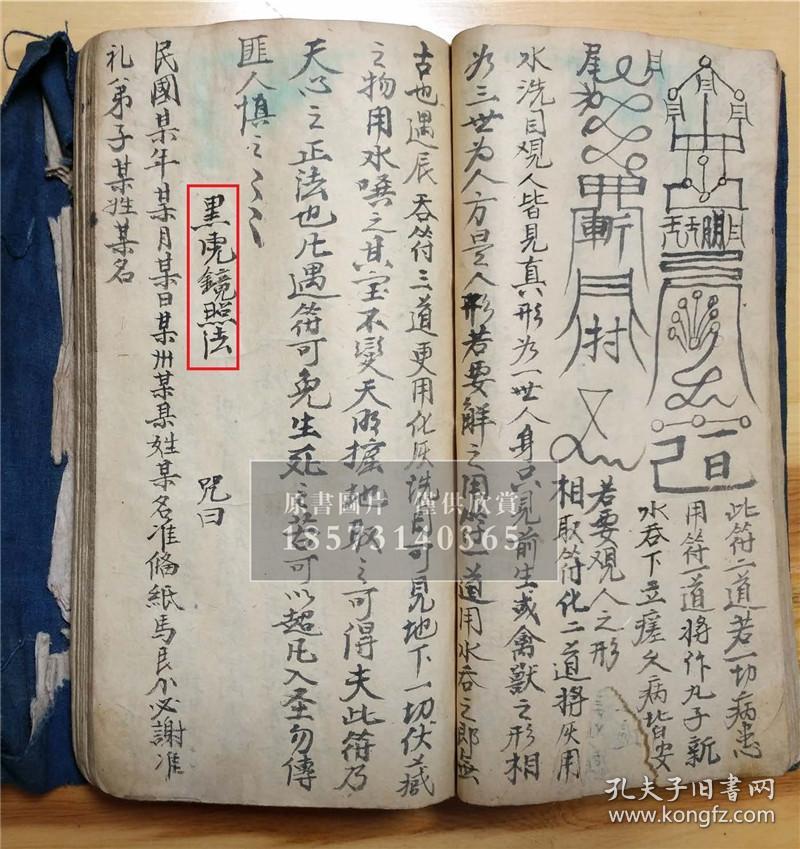 此符二道若一切病患
用符一道將作丸子新
水吞下立瘥久病皆安
尾为
斬
若要观人之形
相取符化二道將灰用
水洗目覌人皆見真形为一世人身只見前生或禽獸之形相
为三世为人方是人形若要解之用符一道用水吞之即無
古也遇辰吞符三道更用化灰洗目可見地下一切伏藏
之物用水噀之其宝不變天明掘地取之可得夫此符乃
天心之正法也凡遇符可免生死之苦可以超凡入圣勿傳
匪人慎之
黑虎鏡照法
咒曰
民國某年某月某日某州某县姓某名准俻紙馬
謝准
礼弟子某姓某名
原書圖片 僅供欣賞
18573140365
孔夫子旧书网
www.kongfz.com